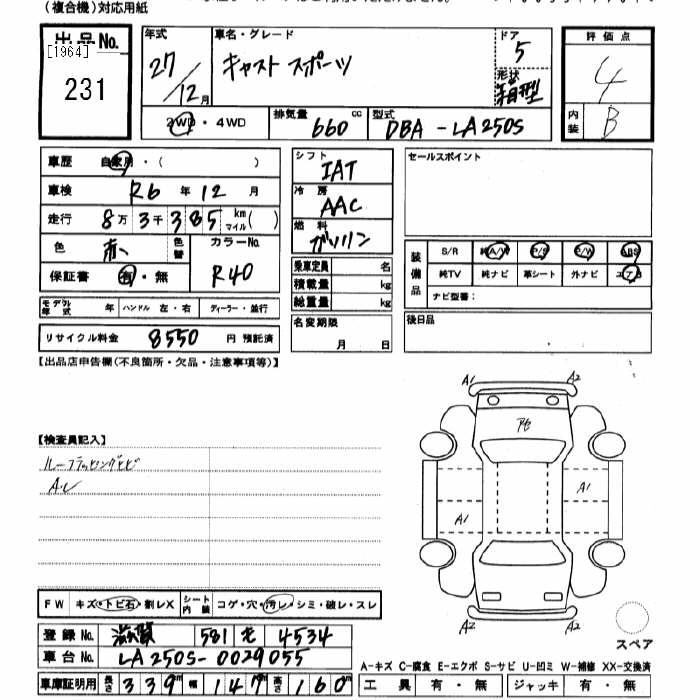 (複合機)対応用紙
出品No.
[1964]
231
年式
27/12月
車名・グレード
キャスト スポーツ
ドア
5
形状
箱型
評価点
4
内装
B
2WD・4WD
排気量
660cc
型式
DBA-LA250S
車歴 自家用・( )
車検 R6年12月
走行 8万3千385km(マイル)
色 赤
色替
カラーNo.
R40
保証書 有・無
モデル年式 年 ハンドル 左・右 ディーラー・並行
リサイクル料金 8550円 預託済
シフト
IAT
冷房
AAC
燃料
ガソリン
乗車定員 名
積載量 kg
総重量 kg
名変期限
月 日
セールスポイント
装備品
S/R 純A/W P/S P/W ABS
純TV 純ナビ 革シート 外ナビ エアB
ナビ型番:
後日品
【出品店申告欄(不良箇所・欠品・注意事項等)】
【検査員記入】
ルーフラッピングヒビ
A・U
A1
A2
A1
A1
A2
A2
スペア
FW キズ・トビ石・割レX
シート内装 コゲ・穴・汚レ・シミ・破レ・スレ
登録No. 滋賀 581 そ 4534
車台No. LA250S-0029055
車庫証明用 長さ 339m 幅 147m 高さ 160m
A-キズ C-腐食 E-エクボ S-サビ U-凹ミ W-補修 XX-交換済
工具 有・無 ジャッキ 有・無